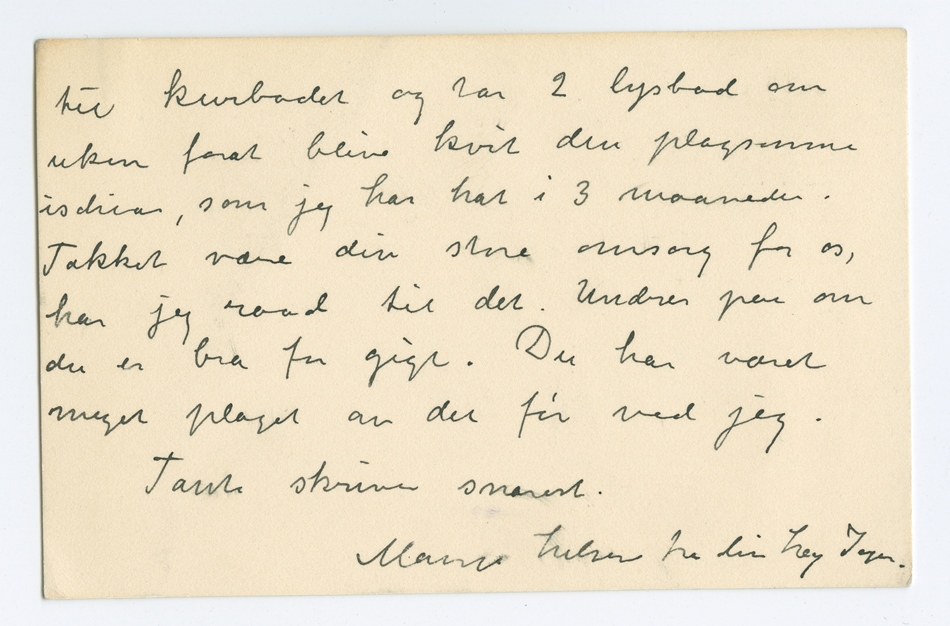 til kurbadet og tar 2 lysbad om
uken forat blive kvit den plagsomme
ischias, som jeg har hat i 3 maaneder.
Takket være din store omsorg for os,
har jeg raad til det. Undres paa om
du er bra for gigt. Du har været
meget plaget av det før ved jeg.
Tante skriver snarest.
Mange hilsener fra din